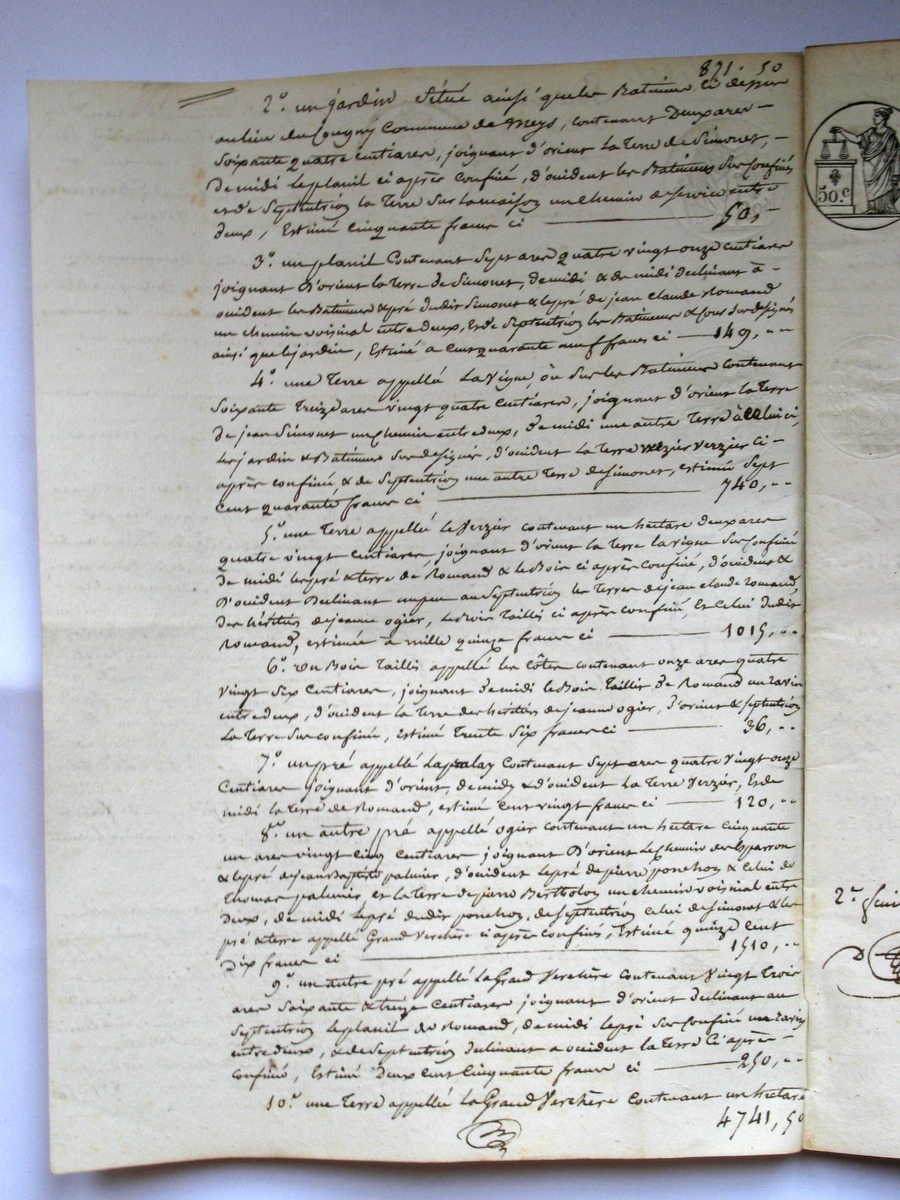 871. 50
2.° un jardin Situé ainsi que les Batimens ci dessus
au lieu du Cogny Commune de Meys, contenant Deux ares
Soixante quatre centiares, joignant d'orient la Terre de Simonet,
de midi le planil ci après confiné, d'occident les Batimens Sus confinés
et de Septentrion la Terre Sur la maison un chemin de Service entre
deux, Estimé cinquante francs ci 50,
3.° un planil Contenant Sept ares quatre vingt onze centiares
joignant d'orient la Terre de Simonet, de midi & de midi declinant à
occident les Batimens & pré dudit Simonet & le pré de jean Claude Romand
un chemin voisinal entre deux, Et de Septentrion les Batimens & cour Sus designés
ainsi que le jardin, Estimé a Cent quarante neuf francs ci 149,
4.° une Terre appellée La Vigne, ou Sur les Batimens contenant
Soixante Treize ares vingt quatre centiares, joignant d'orient la Terre
de jean Simonet un chemin entre deux, de midi une autre Terre à celui ci,
les jardin & Batimens Sus designés, d'occident la Terre Verzier ci
après confiné & de Septentrion une autre Terre de Simonet, estimée Sept
Cent quarante francs ci 740,
5.° une Terre appellée le Verzier contenant un hectare deux ares
quatre vingt centiares, joignant d'orient la Terre la vigne Sus confiné
de midi les pré & terre de Romand & le Bois ci après confiné, d'occident &
d'occident declinant un peu au Septentrion les Terres de jean claude Romand,
des héritiers de jeanne ogier, le Bois Taillis ci après confiné, Et Celui dudit
Romand, estimée à mille quinze francs ci 1015,
6.° un Bois Taillis appellé les côtes contenant onze ares quatre
vingt Six Centiares, joignant de midi le Bois Taillis de Romand un ravin
entre deux, d'occident la Terre des héritiers de jeanne ogier, d'orient & septentrion
La Terre Sus confinée, Estimé Trente Six francs ci 36,
7.° un pré appellé Lapralay Contenant Sept ares quatre Vingt onze
Centiares joignant d'orient, de midi & d'occident la Terre Verzier, Et de
midi la Terre de Romand, estimé Cent vingt francs ci 120,
8.° un autre pré appellé ogier contenant un hectare cinquante
un ares vingt cinq centiares joignant d'orient le Chemin des
& le pré de jean Baptiste palmier, d'occident le pré de pierre ponchon & celui de
Thomas palmier, et la Terre de pierre Bertholon un chemin voisinal entre
deux, de midi le pré dudit ponchon, de Septentrion celui de Simonet & les
pré & terre appellé Grand Verchère ci après confinés, Estimé quinze cent
dix francs ci 1510,
9.° un autre pré appellé La Grand Verchère contenant Vingt Trois
ares Soixante & treize Centiares joignant d'orient declinant au
Septentrion le planil de Romand, de midi le pré Sus confiné un ravin
entre deux, & de Septentrion declinant a occident la Terre Ci après
confiné, Estimé Deux cent Cinquante francs ci 250,
10.° une Terre appellée La Grand Verchère contenant un hectare
4741, 50
50.c
2.e